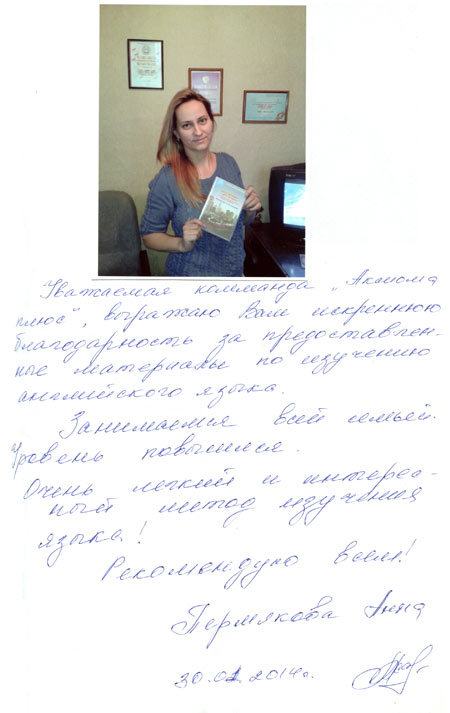 Уважаемая комманда „Аксиома
плюс", выражаю Вам искреннюю
благодарность за предоставлен-
ные материалы по изучению
английского языка.
Занимаемся всей семьей.
Уровень повысился.
Очень легкий и интерес-
ный метод изучения
языка!
Рекомендую всем!
Пермякова Анна
30.01.2014г.